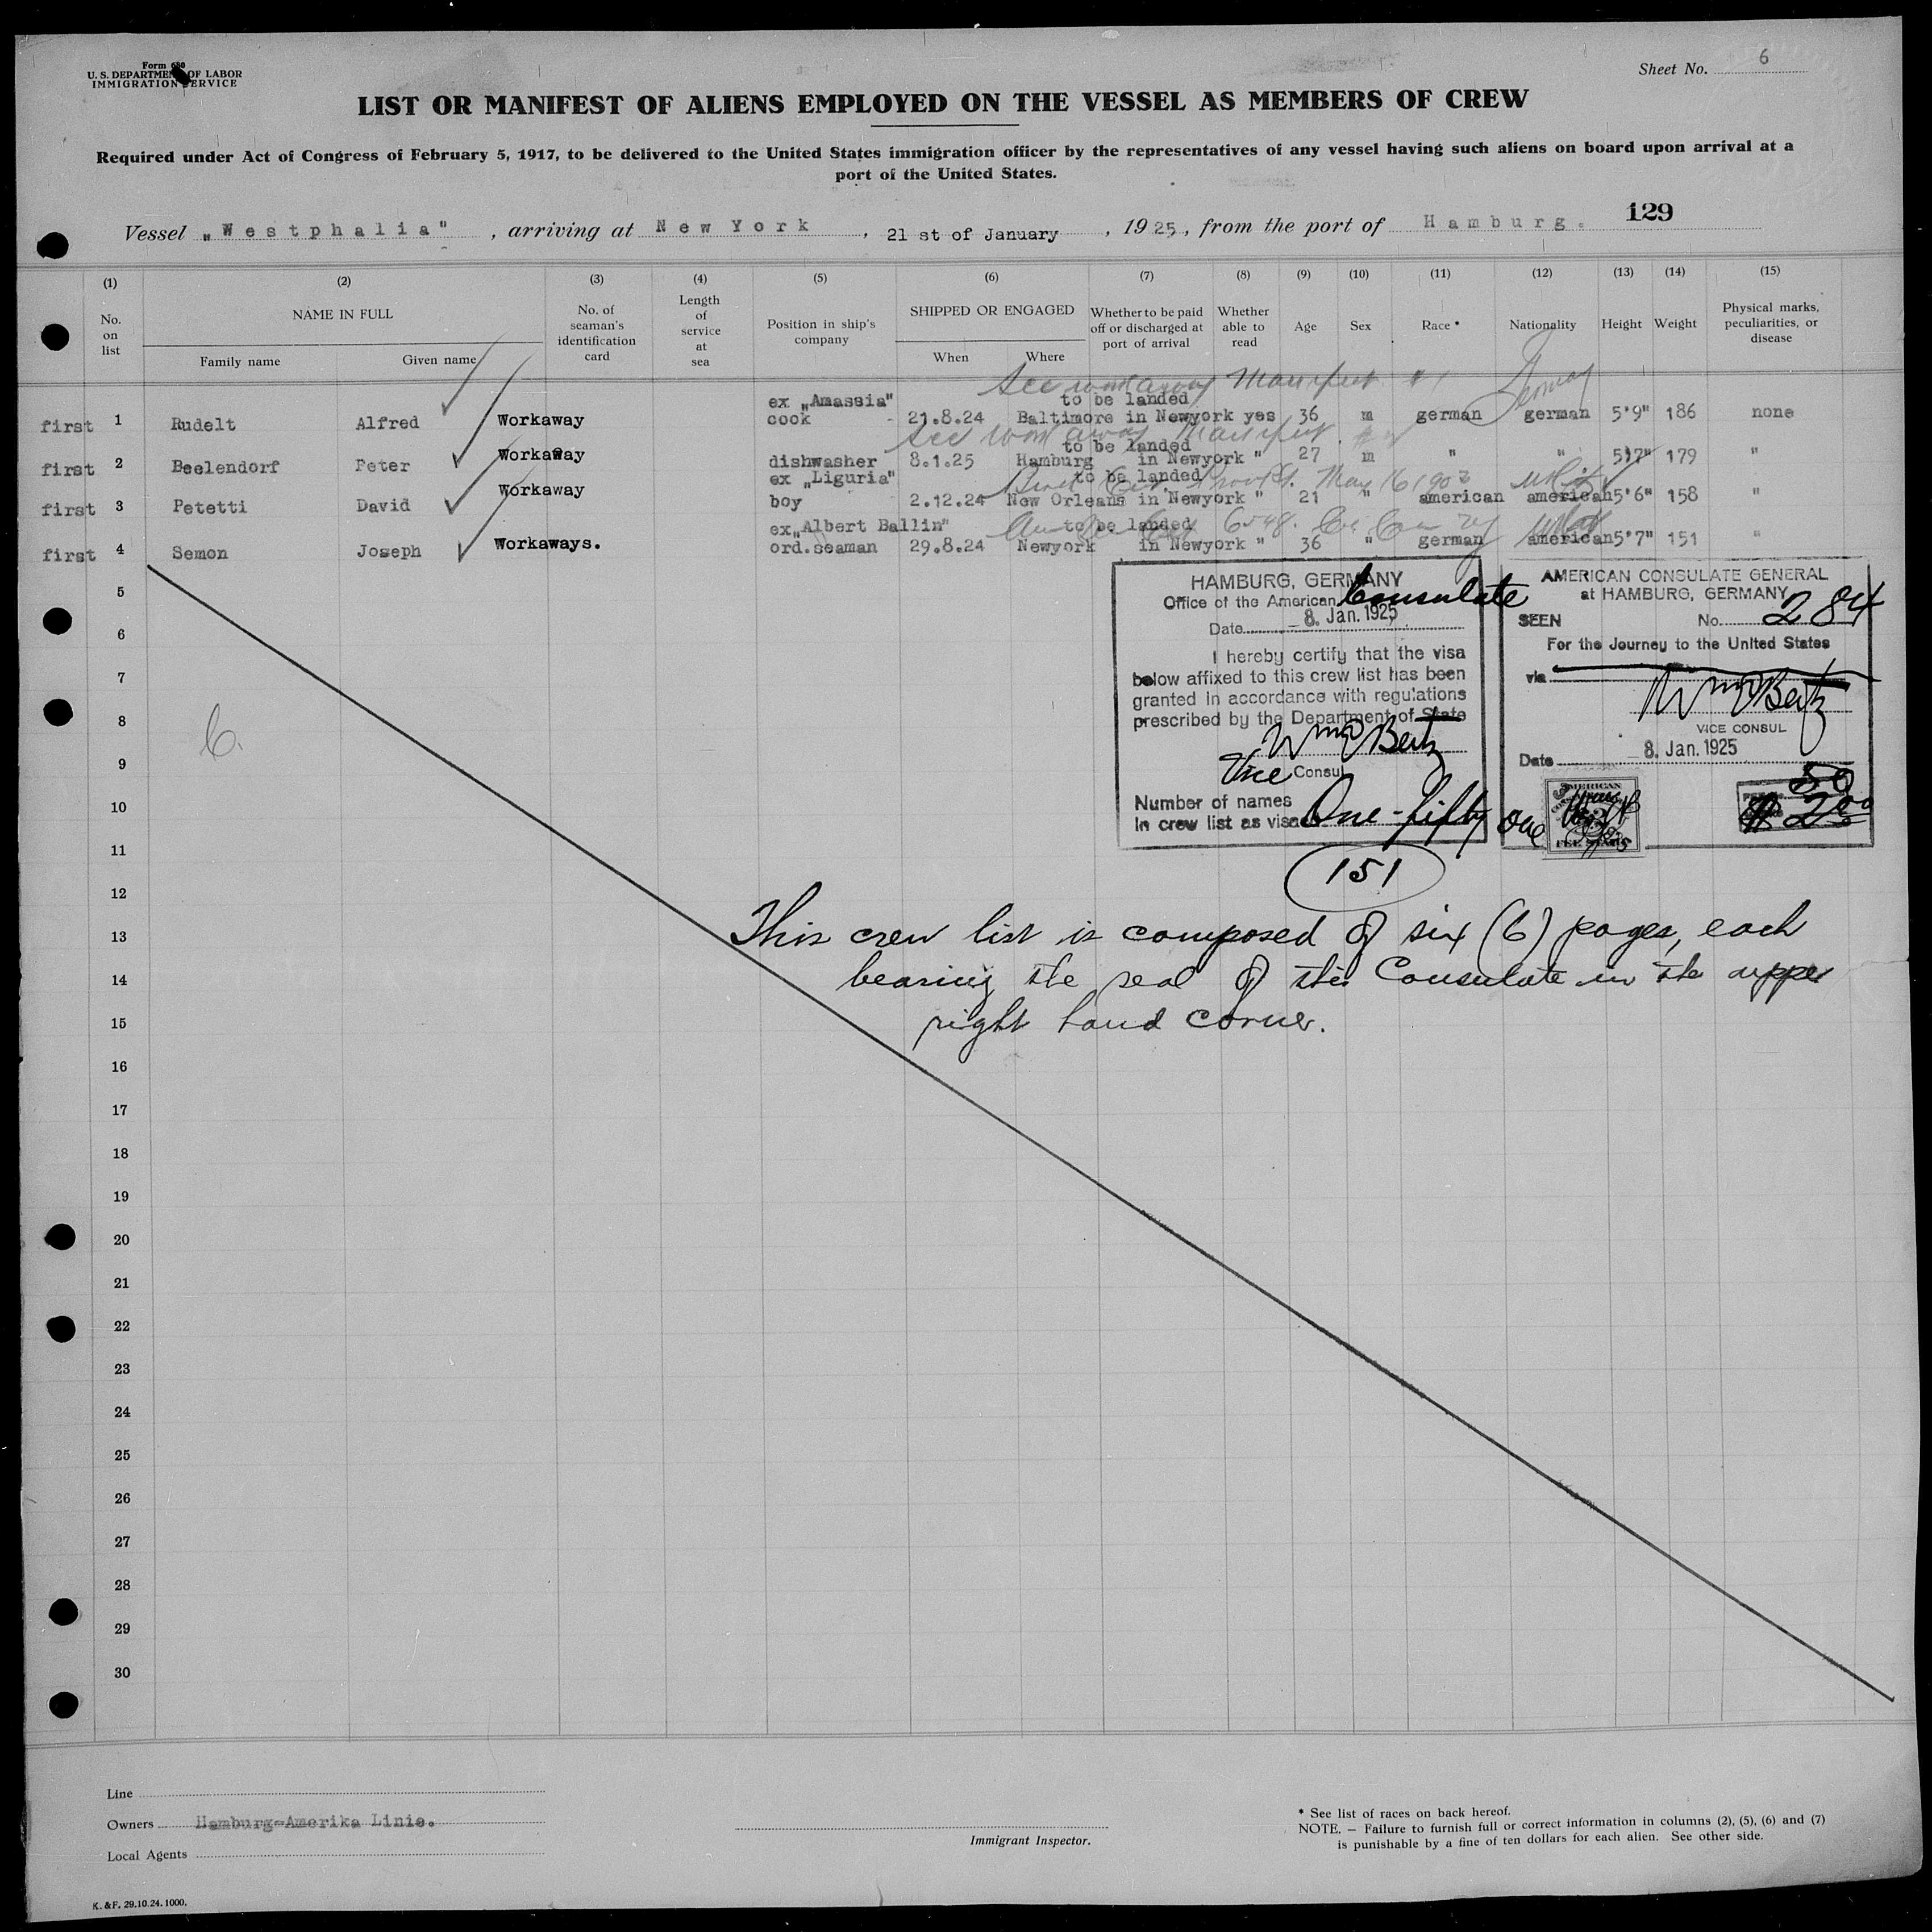 Form 680
U. S. DEPARTMENT OF LABOR
IMMIGRATION SERVICE
Sheet No. 6
LIST OR MANIFEST OF ALIENS EMPLOYED ON THE VESSEL AS MEMBERS OF CREW
Required under Act of Congress of February 5, 1917, to be delivered to the United States immigration officer by the representatives of any vessel having such aliens on board upon arrival at a
port of the United States.
129
Vessel „Westphalia" , arriving at New York , 21 st of January , 1925, from the port of Hamburg.
(1) (2) (3) (4) (5) (6) (7) (8) (9) (10) (11) (12) (13) (14) (15)
No. on list
NAME IN FULL
Family name Given name
No. of seaman's identification card
Length of service at sea
Position in ship's company
SHIPPED OR ENGAGED
When Where
Whether to be paid off or discharged at port of arrival
Whether able to read
Age Sex Race * Nationality Height Weight
Physical marks, peculiarities, or disease
See workaway Manifest #1
ex „Amassia" to be landed
first 1 Rudelt Alfred Workaway cook - 21.8.24 Baltimore in Newyork yes 36 m german german 5'9" 186 none
See workaway Manifest
to be landed
first 2 Beelendorf Peter Workaway dishwasher 8.1.25 Hamburg in Newyork " 27 m " " 5'7" 179 "
ex „Liguria" to be landed
May 16 1903
first 3 Petetti David Workaway boy 2.12.24 New Orleans in Newyork " 21 " american american 5'6" 158 "
ex„Albert Ballin" to be landed
first 4 Semon Joseph Workaways. ord.seaman 29.8.24 Newyork in Newyork " 36 " german american 5'7" 151 "
5
6
7
8
9
10
11
12
13
14
15
16
17
18
19
20
21
22
23
24
25
26
27
28
29
30
6.
HAMBURG, GERMANY
Office of the American Consulate
Date 8. Jan. 1925
I hereby certify that the visa
below affixed to this crew list has been
granted in accordance with regulations
prescribed by the Department of State
Wm Bertz
Vice Consul
Number of names
in crew list as visaed One-fifty one
151
AMERICAN CONSULATE GENERAL
at HAMBURG, GERMANY
SEEN No. 284
For the Journey to the United States
via
Wm Bertz
VICE CONSUL
Date 8. Jan. 1925
AMERICAN
FEE STAMP
This crew list is composed of six (6) pages, each
bearing the seal of this Consulate in the upper
right hand corner.
Line
Owners Hamburg-Amerika Linie.
Local Agents
Immigrant Inspector.
* See list of races on back hereof.
NOTE. — Failure to furnish full or correct information in columns (2), (5), (6) and (7)
is punishable by a fine of ten dollars for each alien. See other side.
K. & F. 29.10.24.1000.